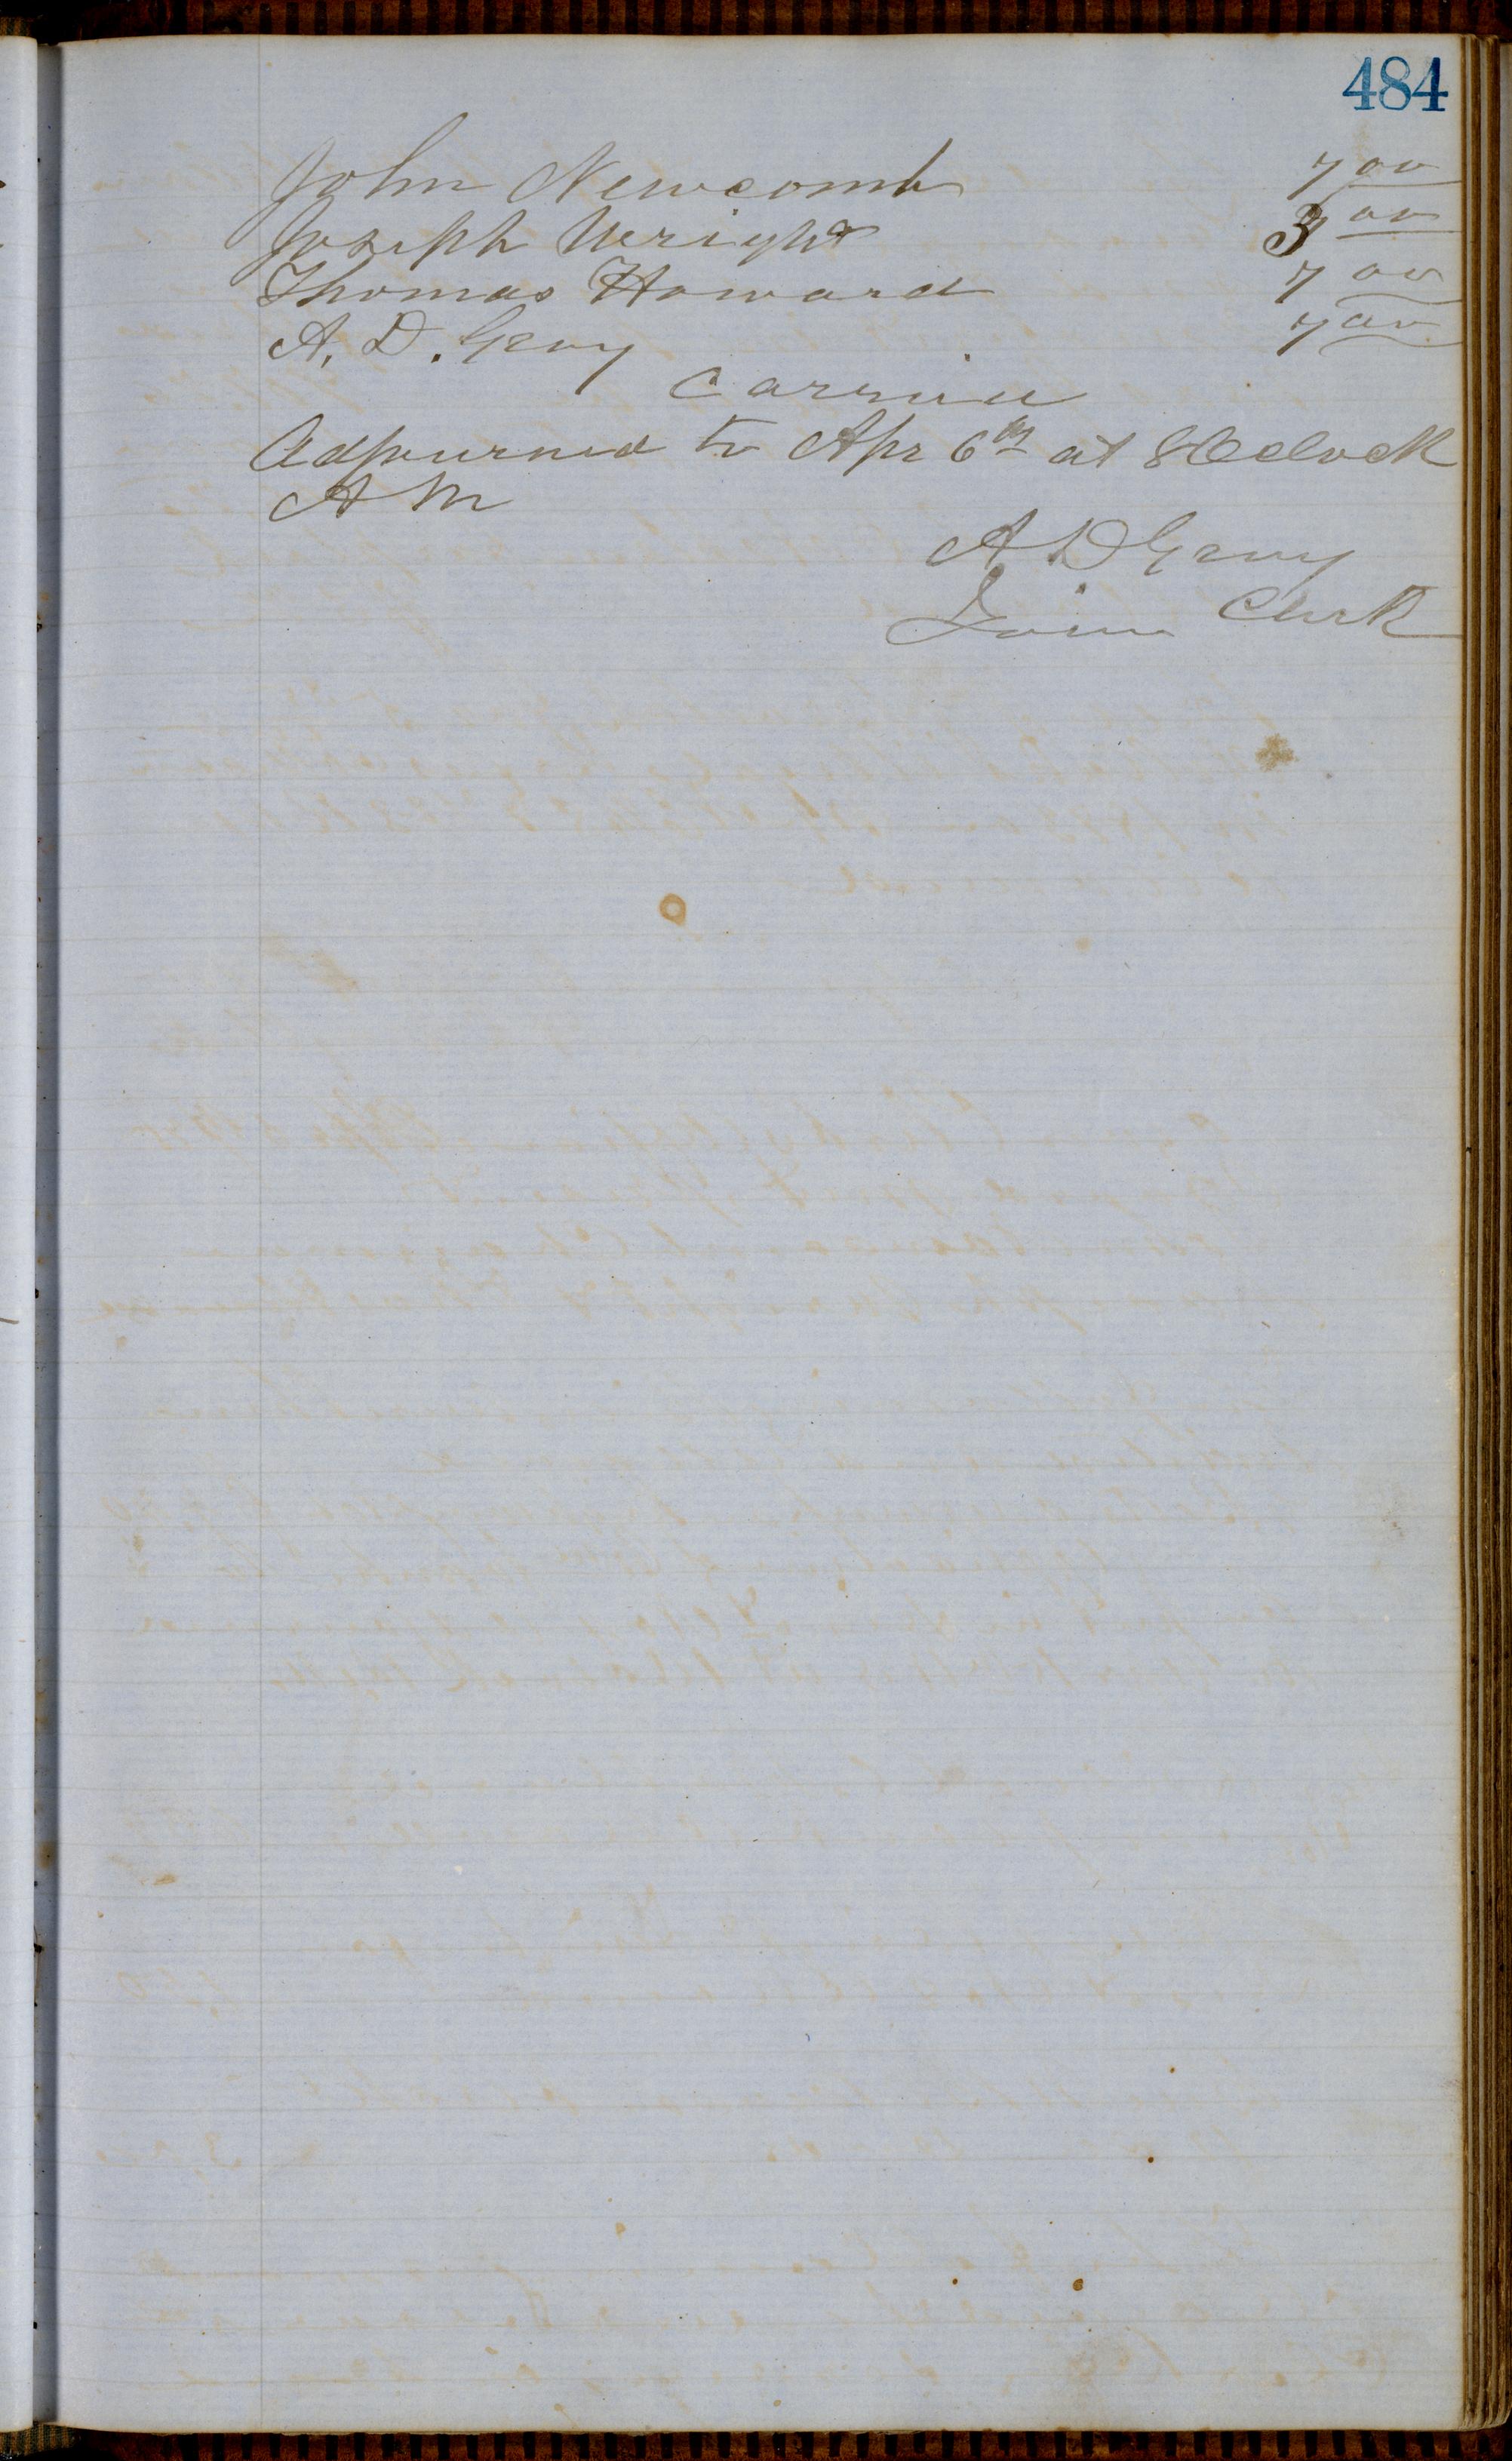 484
John Newcomb 7 00
Joseph Wright 3 00
Thomas Howard 7 00
A. D. Gray 7 00
Carried
Adjourned to Apr 6th at 8 Oclock
A M
A D Gray
Town Clerk